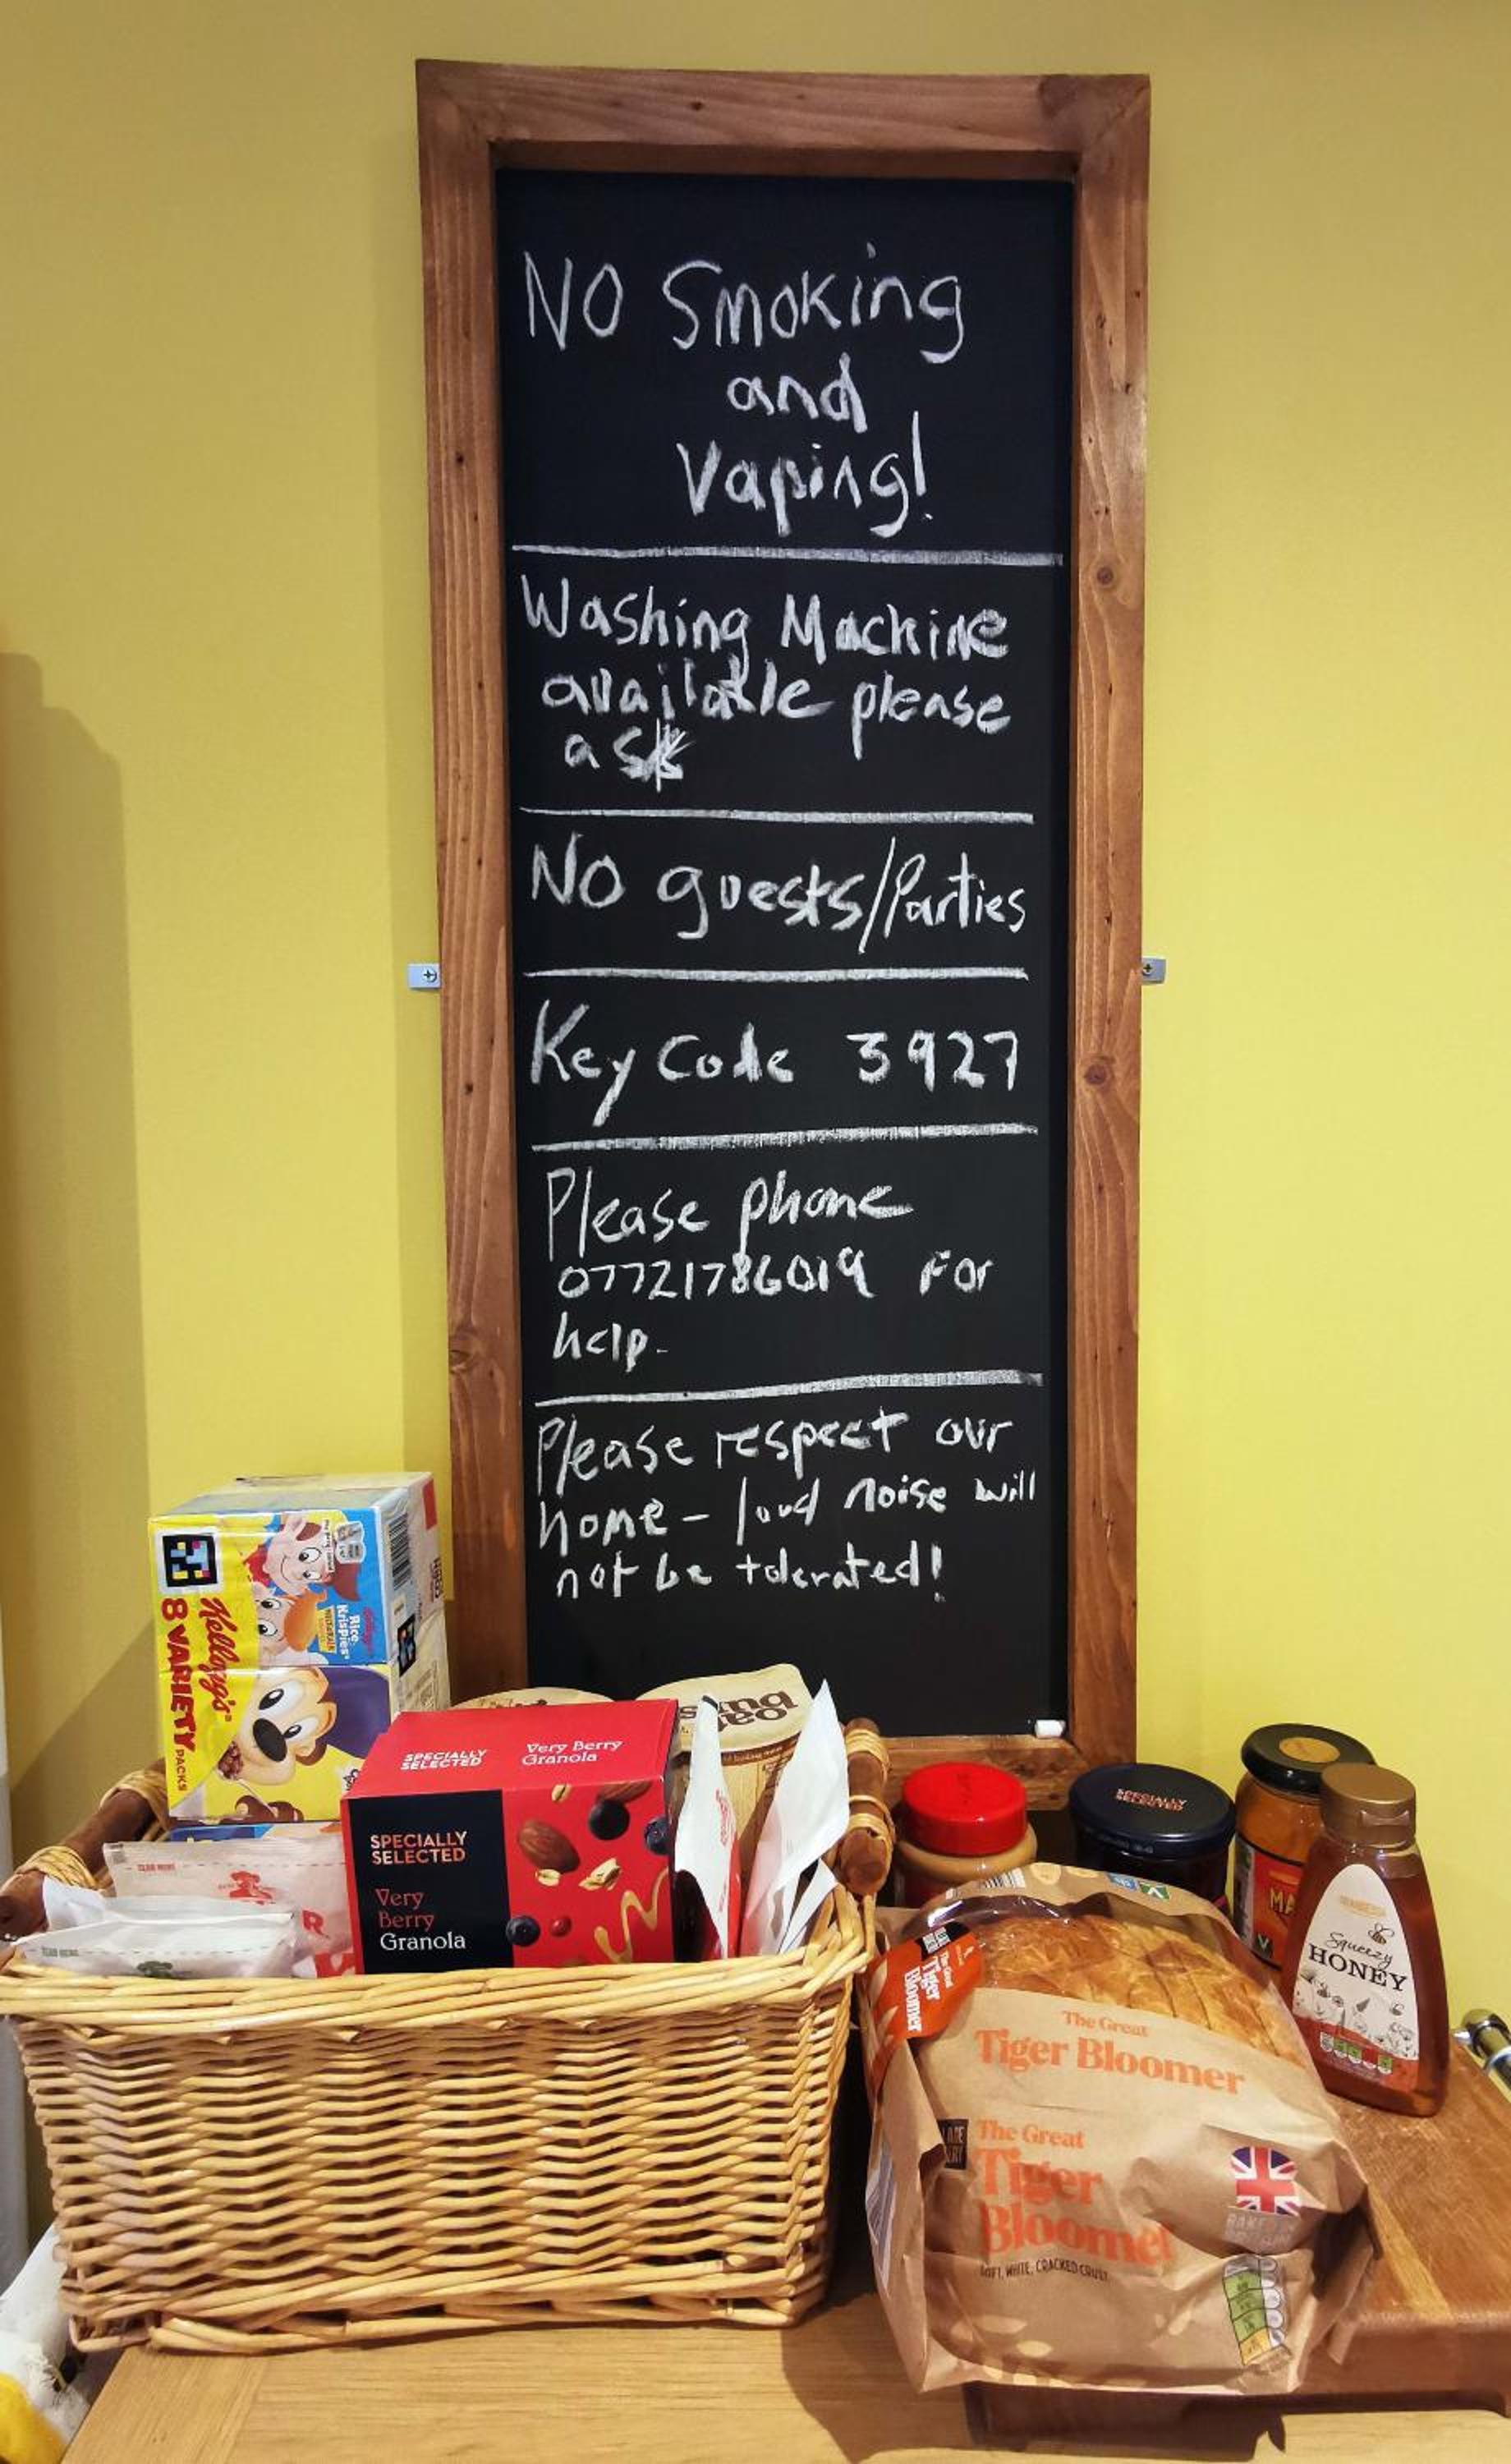 NO Smoking
and
Vaping!
Washing Machine
available please
ask
No guests/Parties
Key Code 3927
Please phone
07721786019 For
help.
Please respect our
home - loud noise will
not be tolerated!
Kellogg's
8 VARIETY PACKS
Kellogg's
Rice
Krispies
SPECIALLY
SELECTED
Very Berry
Granola
SPECIALLY
SELECTED
Very
Berry
Granola
SPECIALLY
SELECTED
MA
Squeezy
HONEY
The Great
Tiger
Bloomer
The Great
Tiger Bloomer
The Great
Tiger
Bloomer
SOFT, WHITE, CRACKED CRUST.